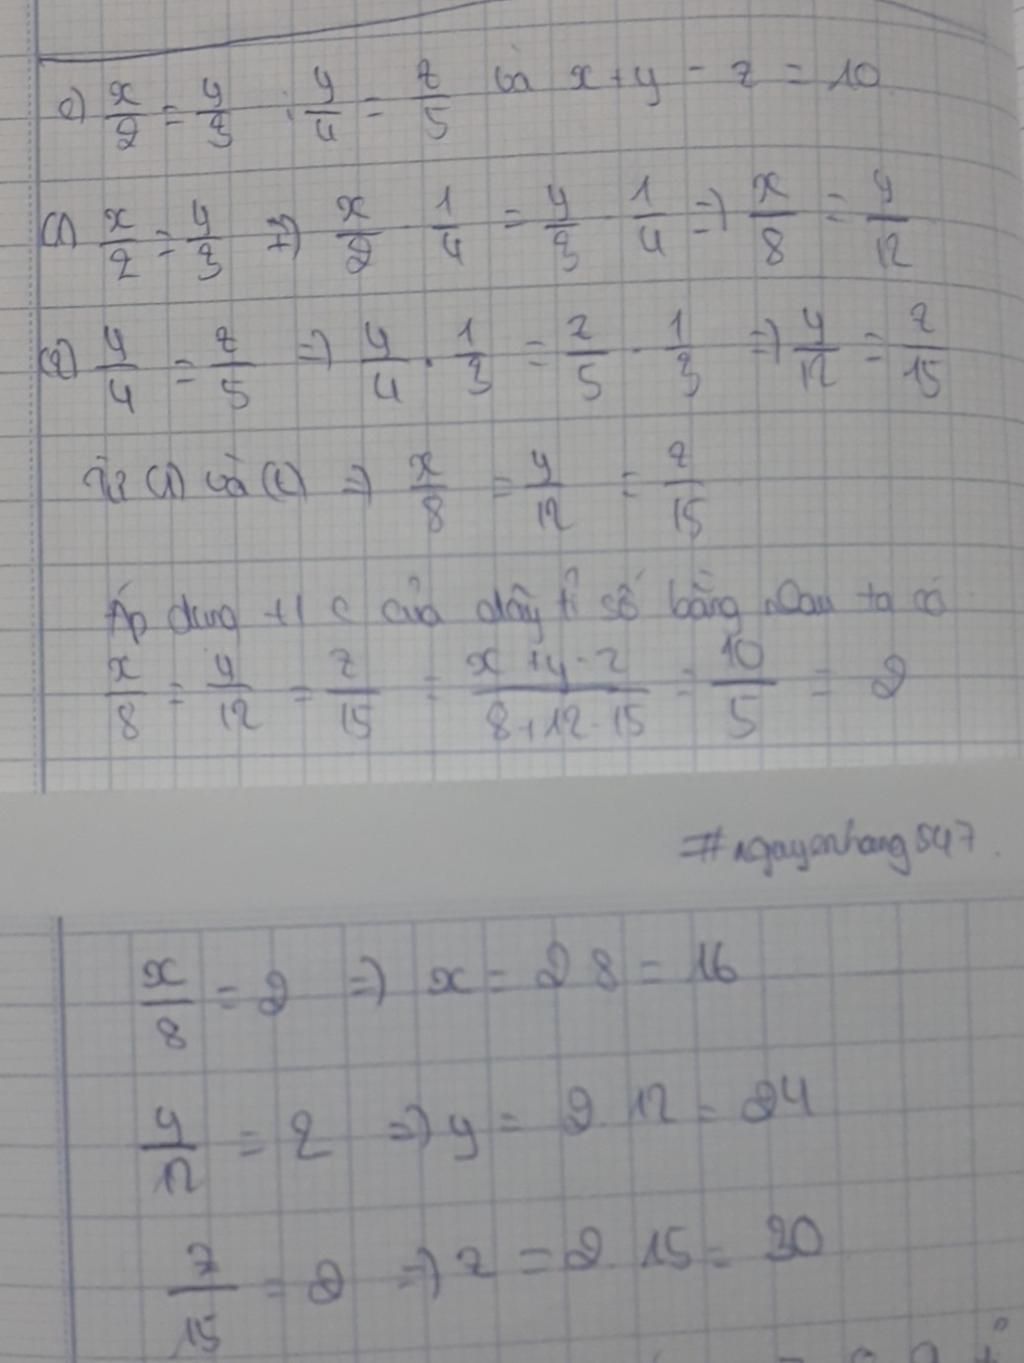 c) x/2 = y/3 ; y/4 = z/5 và x + y - z = 10
(1) x/2 = y/3 => x/2 . 1/4 = y/3 . 1/4 => x/8 = y/12
(2) y/4 = z/5 => y/4 . 1/3 = z/5 . 1/3 => y/12 = z/15
Từ (1) và (2) => x/8 = y/12 = z/15
Áp dụng t/c của dãy tỉ số bằng nhau ta có
x/8 = y/12 = z/15 = x+y-z/8+12-15 = 10/5 = 2
#nguyenhang547.
x/8 = 2 => x = 2.8 = 16
y/12 = 2 => y = 2.12 = 24
z/15 = 2 => z = 2.15 = 30